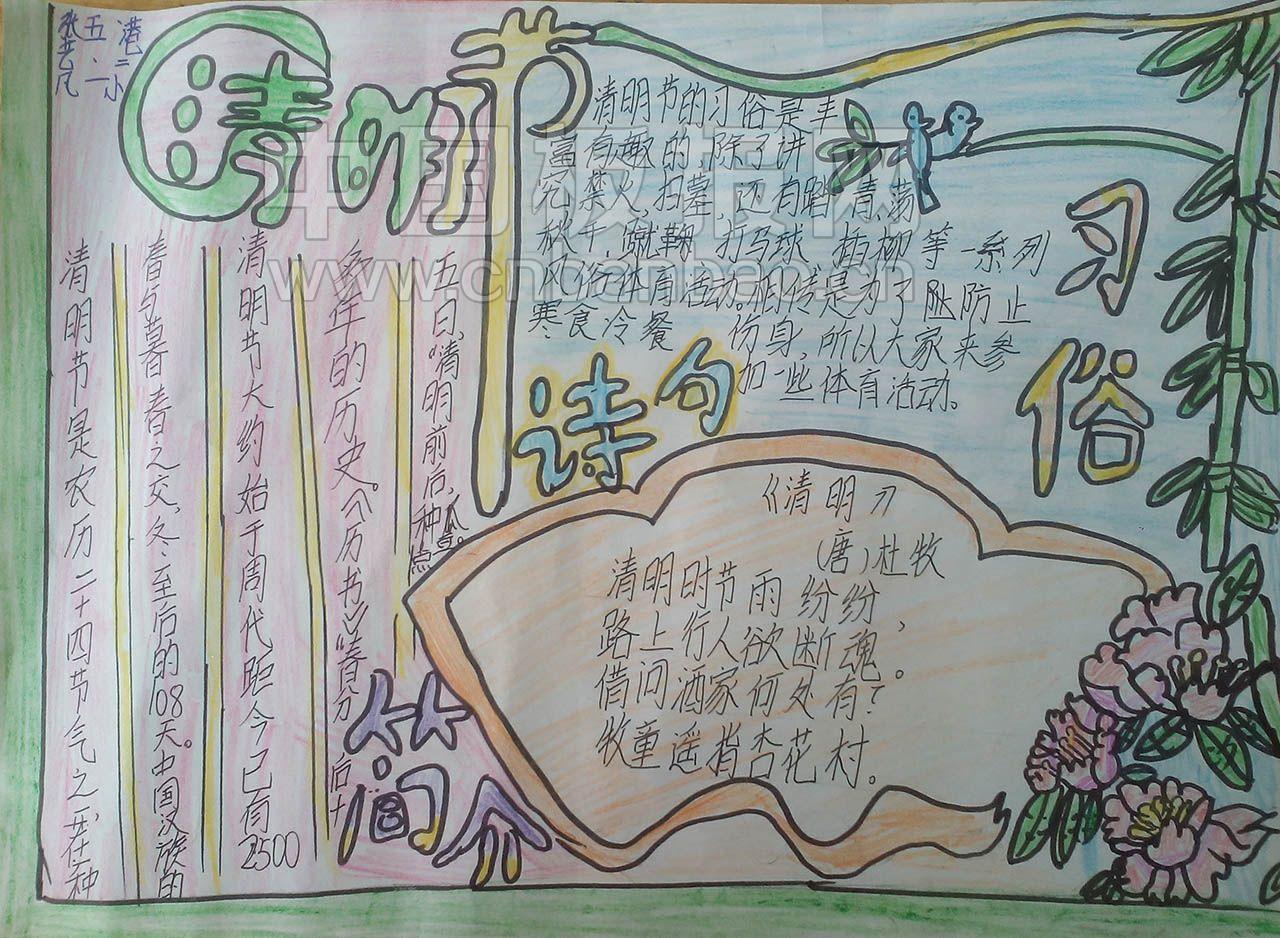 港二小
五·一
张艺凡
清明节
清明节是农历二十四节气之一在仲
春与暮春之交,冬至后的108天。中国汉族的
清明节大约始于周代距今已有2500
多年的历史。《历书》:"春分后十
五日,"清明前后,种瓜点豆。
简介
清明节的习俗是丰
富有趣的,除了讲
究禁火,扫墓,还有踏青,荡
秋千,蹴鞠,打马球,插柳等一系列
风俗体育活动。相传是为了防止
寒食冷餐伤身,所以大家来参
加一些体育活动。
习俗
诗句
《清明》
(唐)杜牧
清明时节雨纷纷,
路上行人欲断魂。
借问酒家何处有?
牧童遥指杏花村。
中国板报网
www.cnbanbao.cn